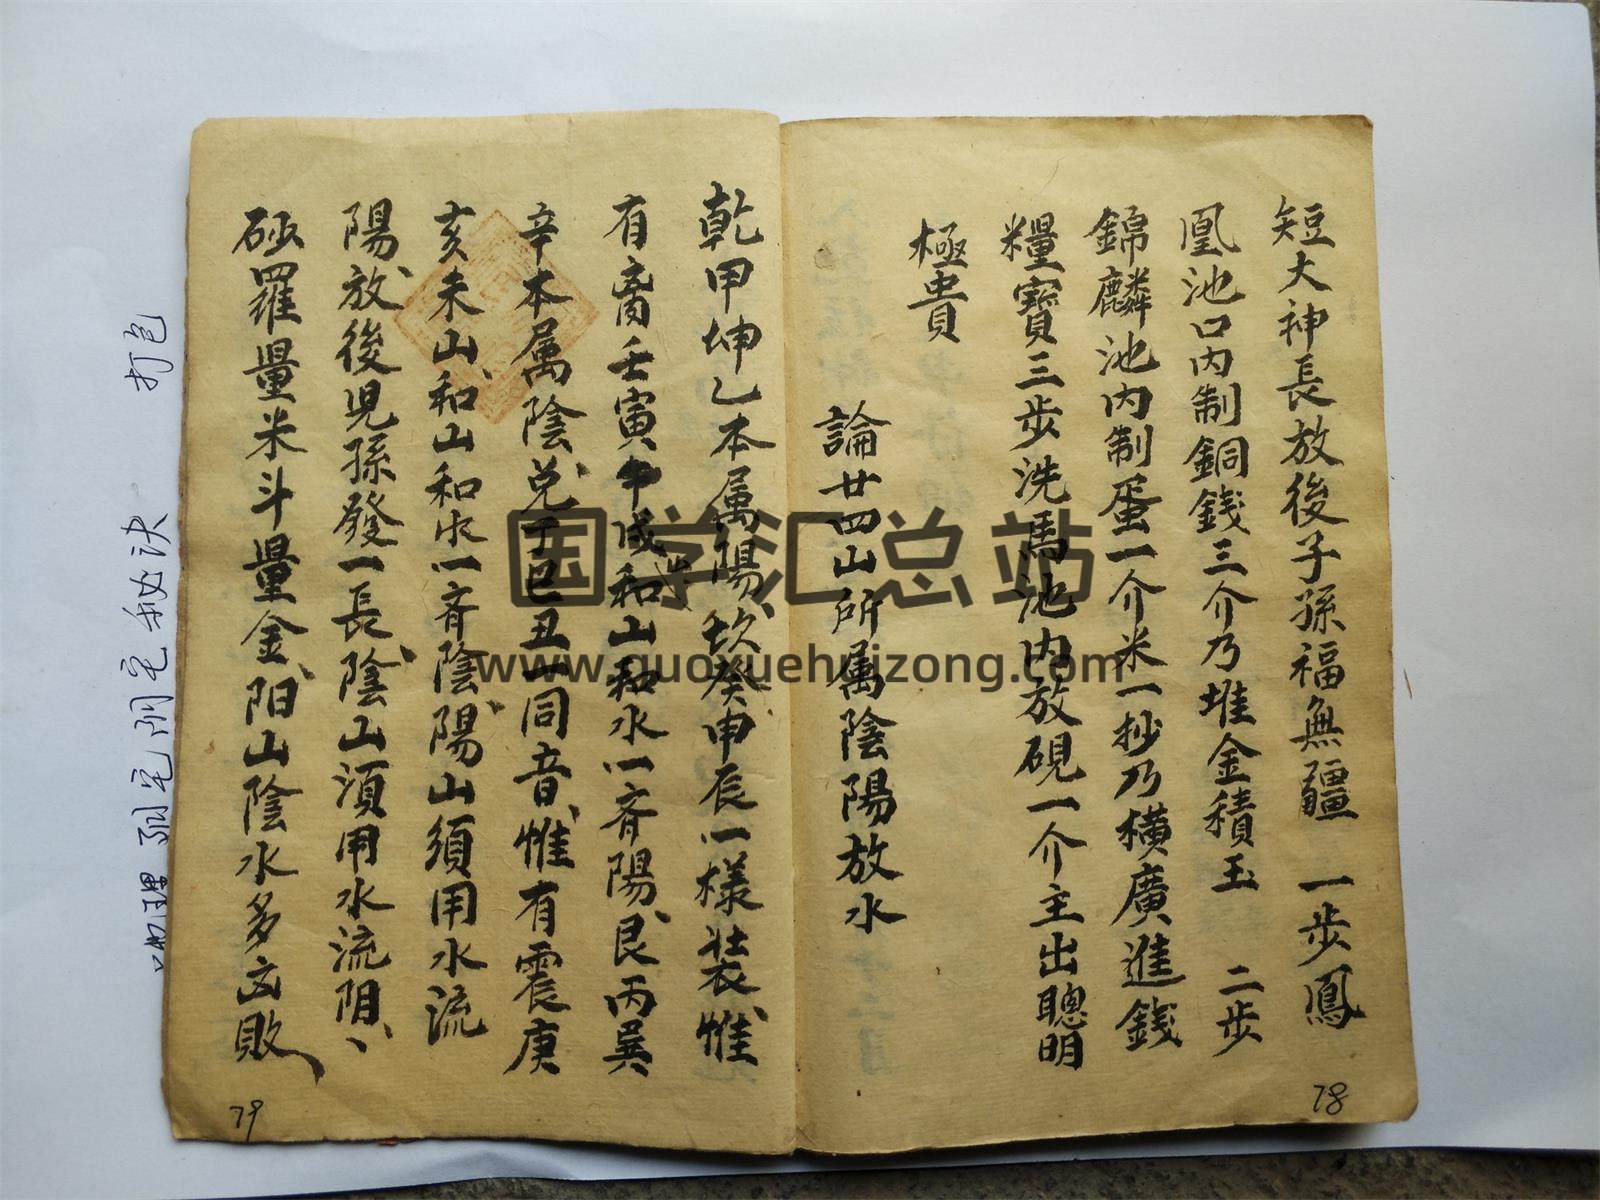 短大神長放後子孫福無疆 一步鳳
凰池口内制銅錢三介乃堆金積玉 二步
錦麟池内制蛋一介米一抄乃橫廣進錢
糧寶三步洗馬池内放硯一介主出聰明
極貴
論廿四山所属陰陽放水
78
乾甲坤乙本属陽、坎癸申辰一樣装、惟
有离壬寅午戌和山和水一齐陽、艮丙巽
辛本属陰、兑丁巳丑一同音、惟有震庚
亥未山、和山和水一齐陰、陽山須用水流
陽、放後児孫發一長、陰山須用水流阴、
砳羅量米斗量金、阳山陰水多凶敗
79
地理阳宅阴宅秘决 打包
国学汇总站
www.guoxuehuizong.com